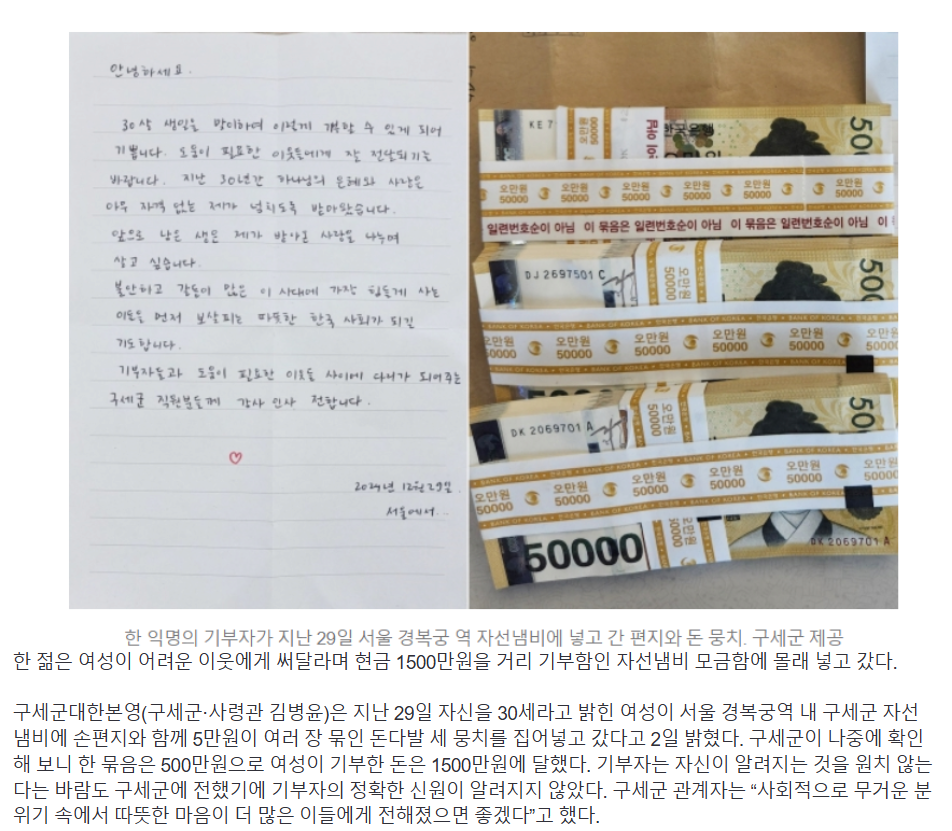 안녕하세요.
30살 생일을 맞이하여 이렇게 기부할 수 있게 되어
기쁩니다. 도움이 필요한 이웃들에게 잘 전달되기를
바랍니다. 지난 30년간 하나님의 은혜와 사랑을
아무 자격 없는 제가 넘치도록 받아왔습니다.
앞으로 남은 생은 제가 받아온 사랑을 나누며
살고 싶습니다.
불안하고 갈등이 많은 이 시대에 가장 힘들게 사는
이들을 먼저 보살피는 따뜻한 한국 사회가 되길
기도합니다.
기부자들과 도움이 필요한 이웃들 사이에 다리가 되어주는
구세군 직원분들께 감사 인사 전합니다.
2024년 12월 29일.
서울에서...
KE 7
50000
한국은행
500
오만원 오만원 오만원 오만원 오만원 오만원
50000 50000 50000 50000 50000 50000
일련번호순이 아님 이 묶음은 일련번호순이 아님 이 묶음은 일련번호순이 아님 이
DJ 2697501 C
오만원
50000
500
BANK OF KOREA 한국은행 BANK OF KOREA
오만원 오만원 오만원 오만원 오만원
50000 50000 50000 50000 50000
DK 2069701 A
오만원
50000
50
BANK OF KOREA 한국은행 BANK OF KOREA
오만원 오만원 오만원 오만원 오만원
50000 50000 50000 50000 50000
50000
DK 2069701 A
한 익명의 기부자가 지난 29일 서울 경복궁 역 자선냄비에 넣고 간 편지와 돈 뭉치. 구세군 제공
한 젊은 여성이 어려운 이웃에게 써달라며 현금 1500만원을 거리 기부함인 자선냄비 모금함에 몰래 넣고 갔다.
구세군대한본영(구세군·사령관 김병윤)은 지난 29일 자신을 30세라고 밝힌 여성이 서울 경복궁역 내 구세군 자선
냄비에 손편지와 함께 5만원이 여러 장 묶인 돈다발 세 뭉치를 집어넣고 갔다고 2일 밝혔다. 구세군이 나중에 확인
해 보니 한 묶음은 500만원으로 여성이 기부한 돈은 1500만원에 달했다. 기부자는 자신이 알려지는 것을 원치 않는
다는 바람도 구세군에 전했기에 기부자의 정확한 신원이 알려지지 않았다. 구세군 관계자는 “사회적으로 무거운 분
위기 속에서 따뜻한 마음이 더 많은 이들에게 전해졌으면 좋겠다”고 했다.